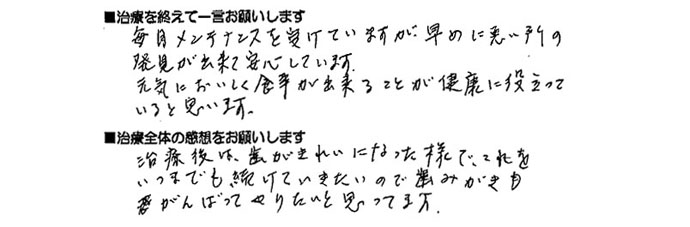 ■治療を終えて一言お願いします
毎月メンテナンスを受けていますが、早めに悪い所の
発見が出来て安心しています。
元気においしく食事が出来ることが健康に役立って
いると思います。
■治療全体の感想をお願いします
治療後は、歯がきれいになった様で、これを
いつまでも続けていきたいので歯みがきも
がんばってやりたいと思ってます。